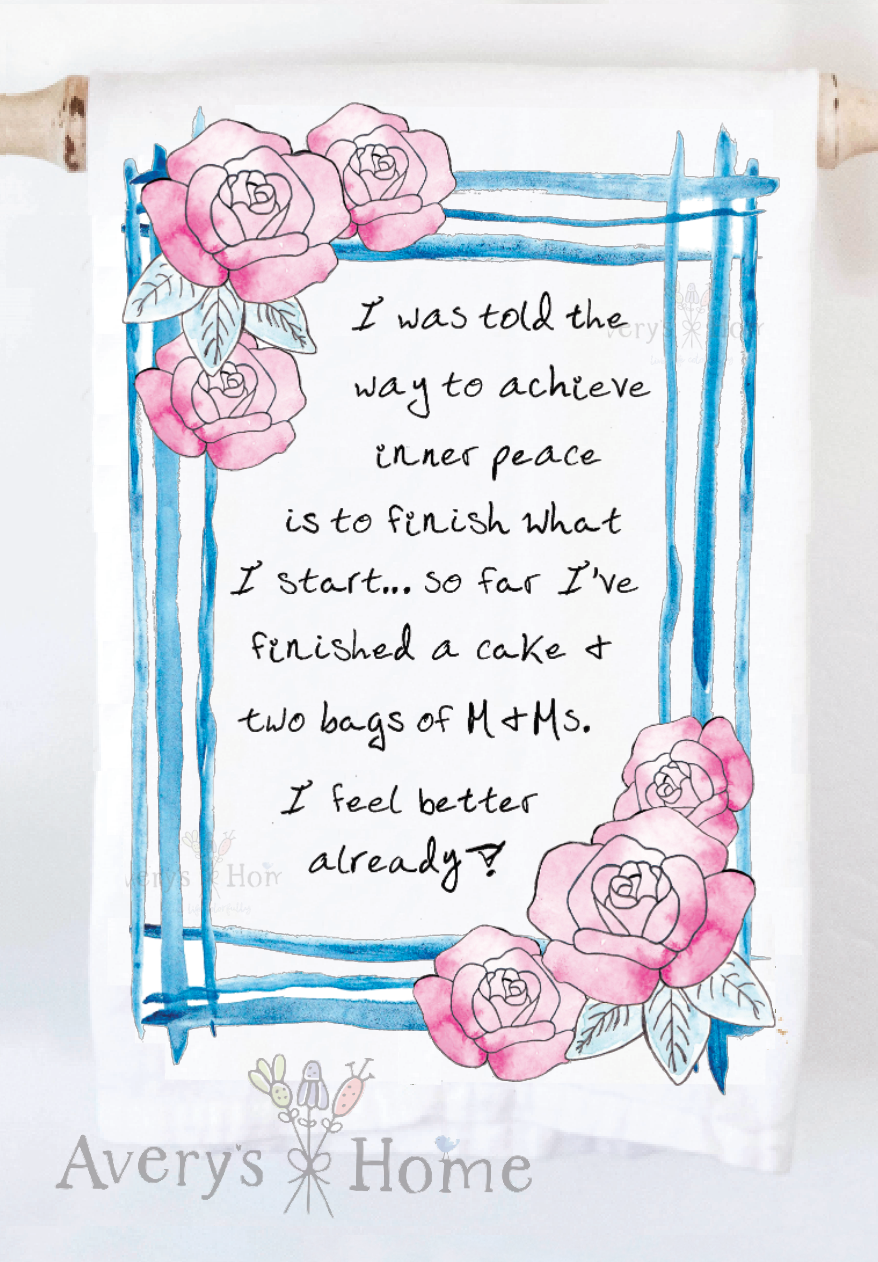 I was told the
way to achieve
inner peace
is to finish what
I start... so far I've
finished a cake &
two bags of M&Ms.
I feel better
already!
Avery's Home
Avery's Home
Avery's Home